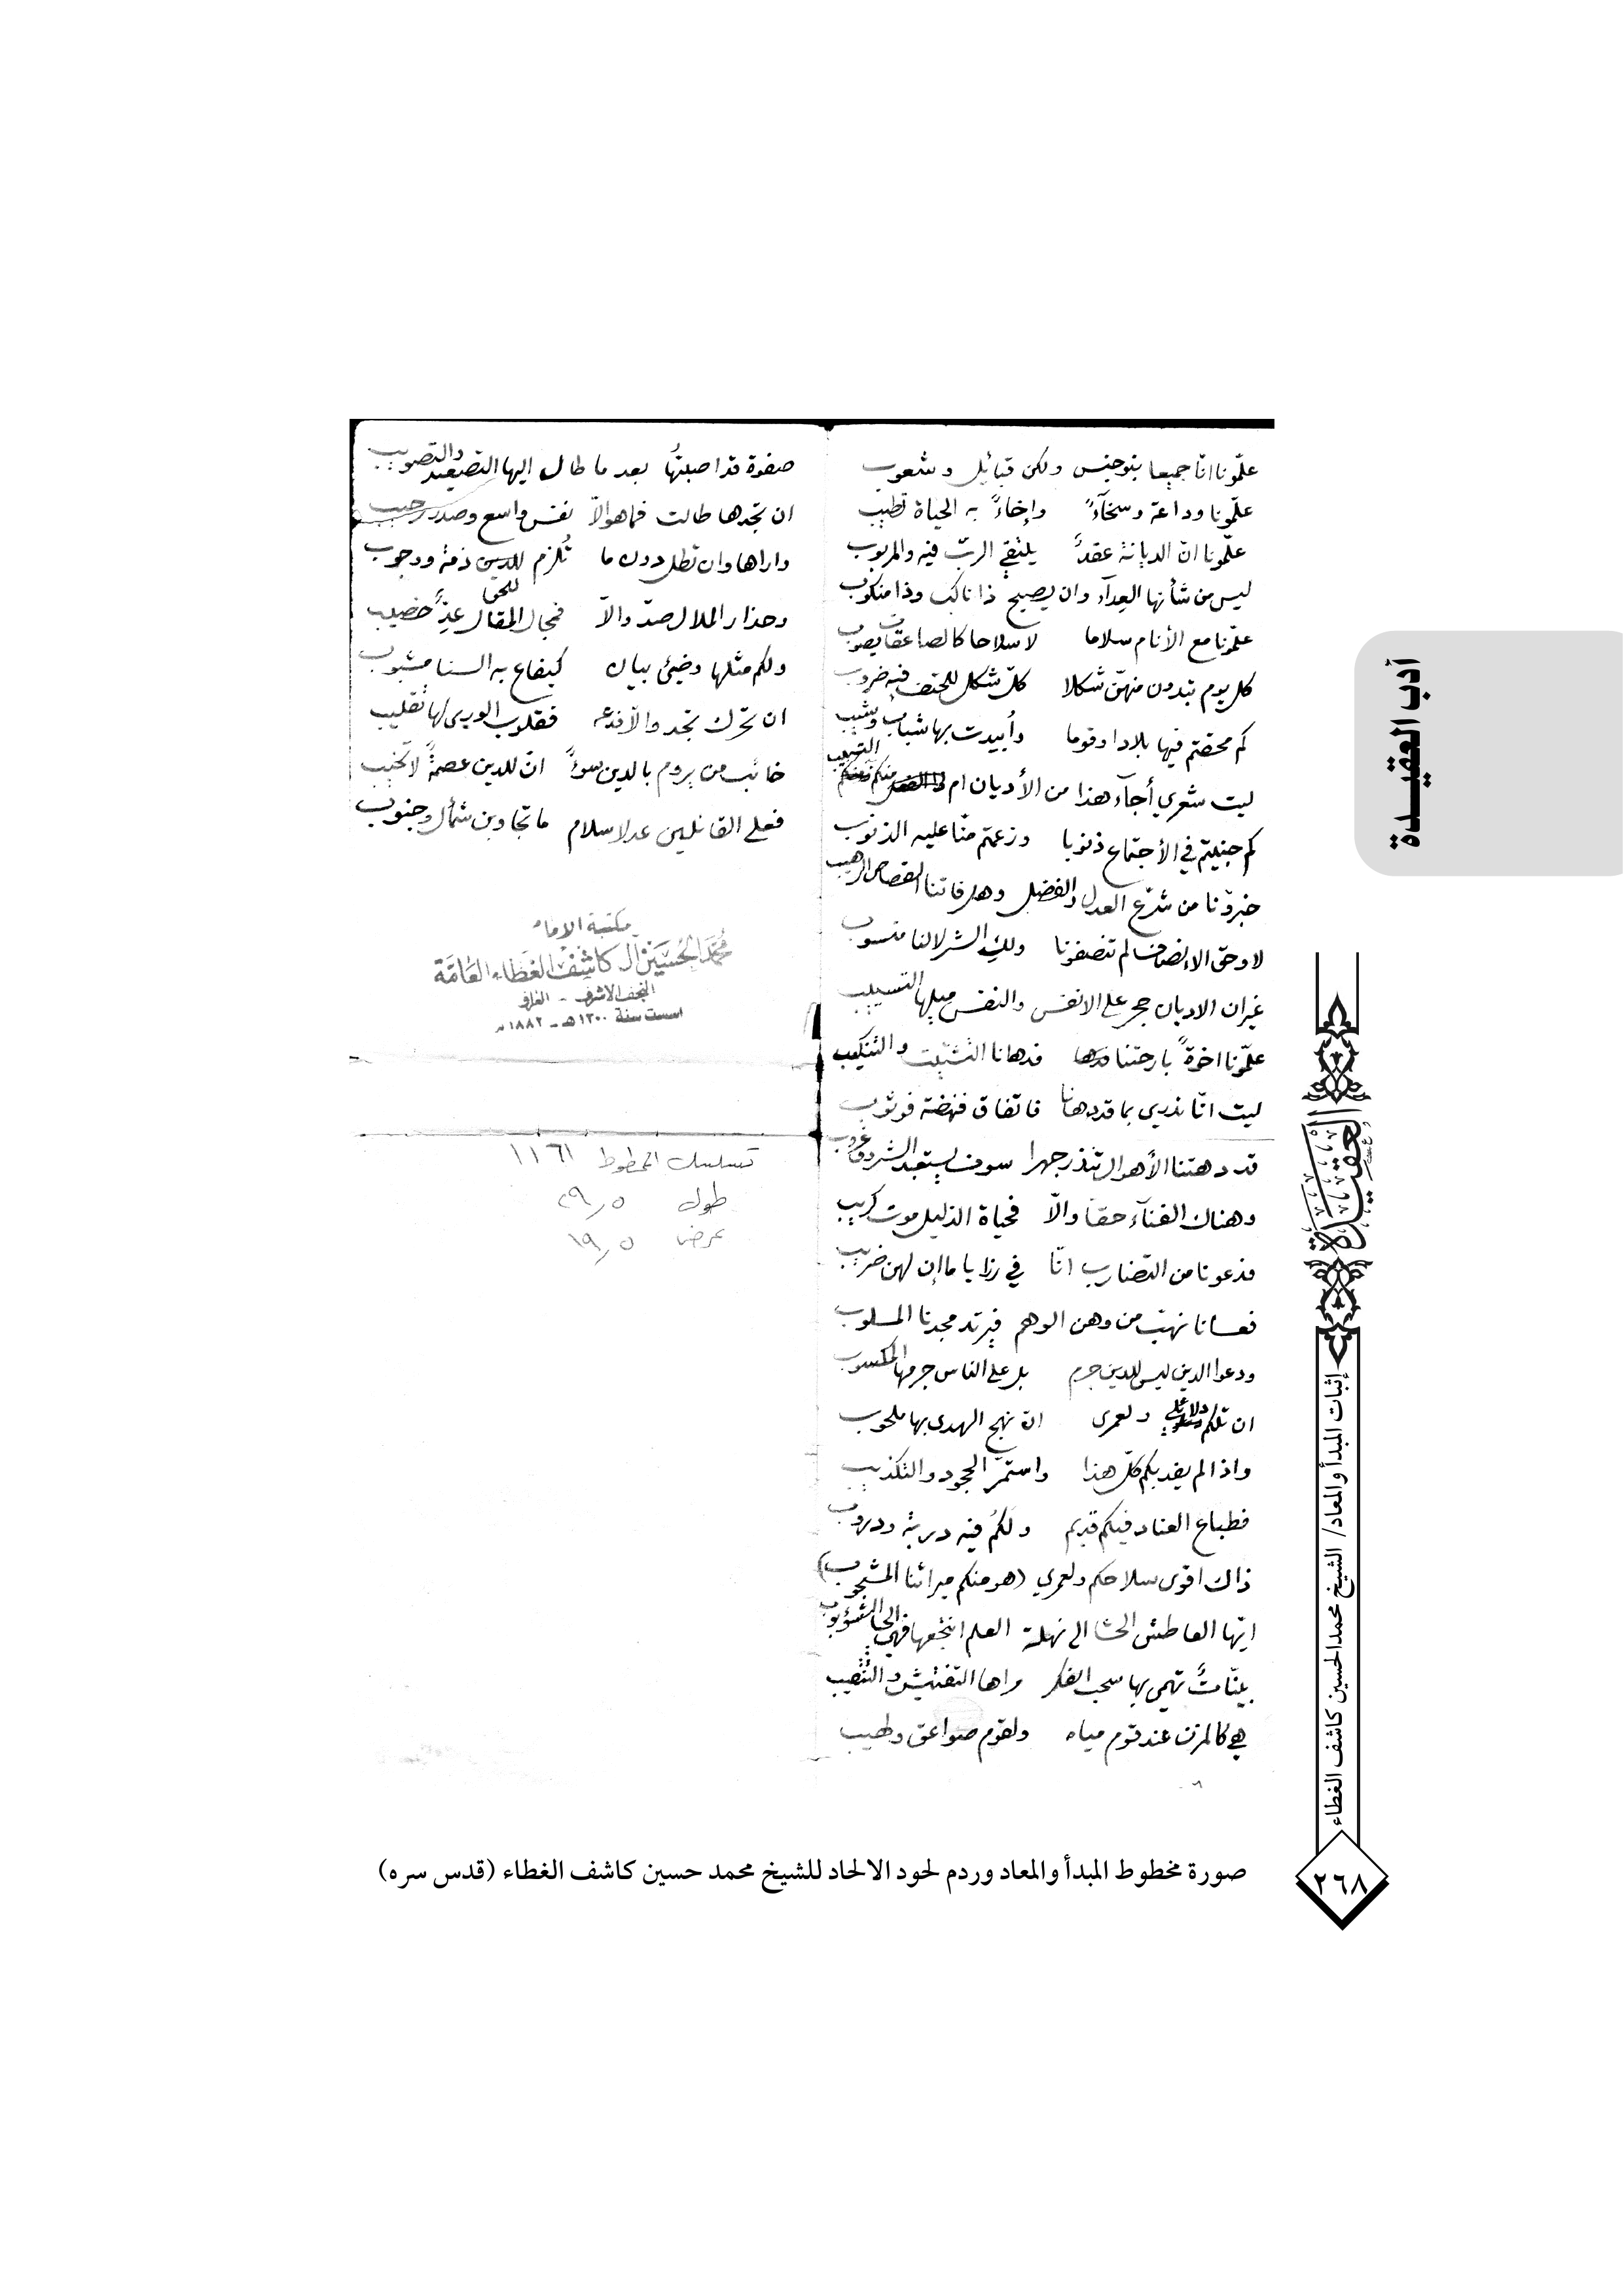 أدب العقيـــدة
علّمونا انّا جميعا بنو جنس ولكن قبائل وشعوب
علّمونا وداعة وسخآءً وإخاءً به الحياة تطيب
علّمونا انّ الديانة عقدٌ يلتقي الربّ فيه والمربوب
ليس من شأنها العدآء وان يصبح ذا ناكب وذا منكوب
علّمونا مع الأنام سلاما لا سلاحا كالصاعقات يصوب
كل يوم تبدون منهنّ شكلا كلّ شكل للحتف فيه ضروب
كم محقتم فيها بلادا وقوما وأبيدت بها شباب وشيب
ليت شعري أجآء هذا من الأديان ام منكم
كم جنيتم في الأجتماع ذنوبا وزعمتم منّا عليه الذنوب
خبرونا من شرّع العدل والفضل وهل فاتنا القصاص الرهيب
لا وحق الانصاف لم تنصفونا ولكم الشر لا لنا منسوب
غير ان الاديان حجر على الانفس والنفس ميلها التسييب
علّمونا اخوةً بارحتنا قد دهانا التشتيت والتنكيب
ليت انّا ندري بما قد دهانا فاتفاق فنهضة فوثوب
قد دهتنا الأهوال تنذر جهرا سوف يستعبد الشروق غروب
وهناك الفنآء حقا والّا فحياة الذليل موت كريب
فدعونا من التضارب انّا في رزايا ما إن لهن ضريب
فعسانا نهب من وهن الوهم فيرتد مجدنا المسلوب
ودعوا الدين ليس للدين جرم بل على الناس جرمها المكسوب
ان تلكم دلائلي ولعمري انّ نهج الهدى بها ملحوب
واذا لم يفد بكم كلّ هذا واستمرّ الجحود والتكذيب
فطباع العناد فيكم قديم ولكم فيه دربة ودروب
ذاك اقوى سلاحكم ولعمري (هو منكم ميراثنا المشجوب)
ايّها العاطش الحشا الى نهلة العلم انتجعها فهي الحيا الشؤبوب
بيّناتٌ تهمي بها سحب الفكر مراها التفتيش والتنقيب
هي كالمزن عند قوم مياه ولقوم صواعق ولهيب
صفوة قد اصبتها بعد ما طال اليها التصعيد والتصويب
ان تجدها طالت فما هو الّا نفس واسع وصدر رحيب
واراها وان تطل دون ما تُلزم للدين ذمة ووجوب
وحذار الملال صدّ والّا فمجال المقال للحق خصيب
ولكم مثلها وضيئ بيان كيفاع به السنا مشبوب
ان تحرك تجد والّا فدعه فقلوب الورى لها تقليب
خائب من يروم بالدين سوءً انّ للدين عصمةً لا تخيب
فعلى القائلين عدلا سلام ما تجاوبن شمأل وجنوب
مكتبة الامام
محمد الحسين آل كاشف الغطاء العامة
النجف الاشرف - العراق
اسست سنة ١٣٠٠ هـ - ١٨٨٢ م
تسلسل المخطوط ١١٦١
طول ٢٩٫٥
عرض ١٩٫٥
صورة مخطوط المبدأ والمعاد وردم لحود الالحاد للشيخ محمد حسين كاشف الغطاء (قدس سره)
العقيدة
إثبات المبدأ والمعاد/ الشيخ محمد الحسين كاشف الغطاء
٢٦٨